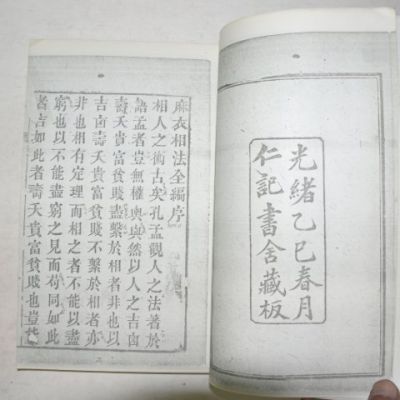 光緒乙巳春月
仁記書舍藏板
麻衣相法全編序
相人之術古矣孔孟觀人之法著於
語孟者豈無權輿與然以人之吉凶
壽夭貴富貧賤盡繫於相者非也以
吉凶壽夭貴富貧賤不繫於相者亦
非也相有定理而相之者不能以盡
窮也以不能盡窮之見而苟同如此
者吉如此者壽夭貴富貧賤也豈